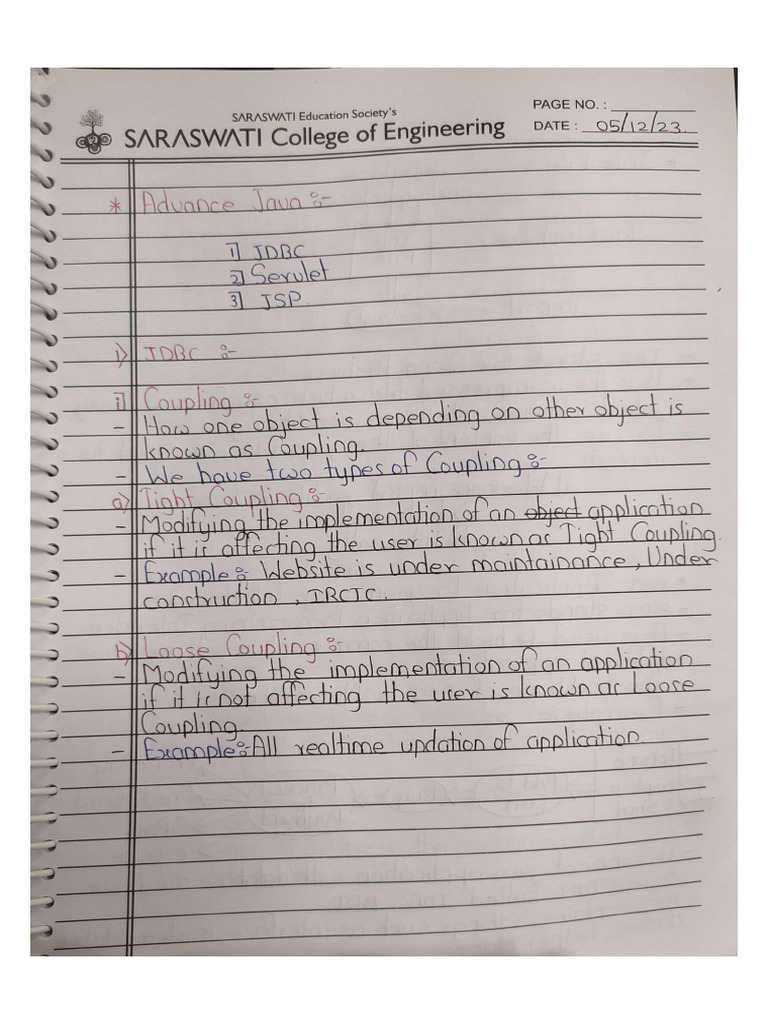 SARASWATI Education Society's
SARASWATI College of Engineering
PAGE NO. :
DATE : 05/12/23.
* Advance Java :-
1] JDBC
2] Servlet
3] JSP
1) JDBC :-
i] Coupling :-
- How one object is depending on other object is
known as Coupling.
- We have two types of Coupling :-
a) Tight Coupling :-
- Modifying the implementation of an object application
if it is affecting the user is known as Tight Coupling.
- Example :- Website is under maintainance, Under
construction, IRCTC.
b) Loose Coupling :-
- Modifying the implementation of an application
if it is not affecting the user is known as Loose
Coupling.
- Example :- All realtime updation of application